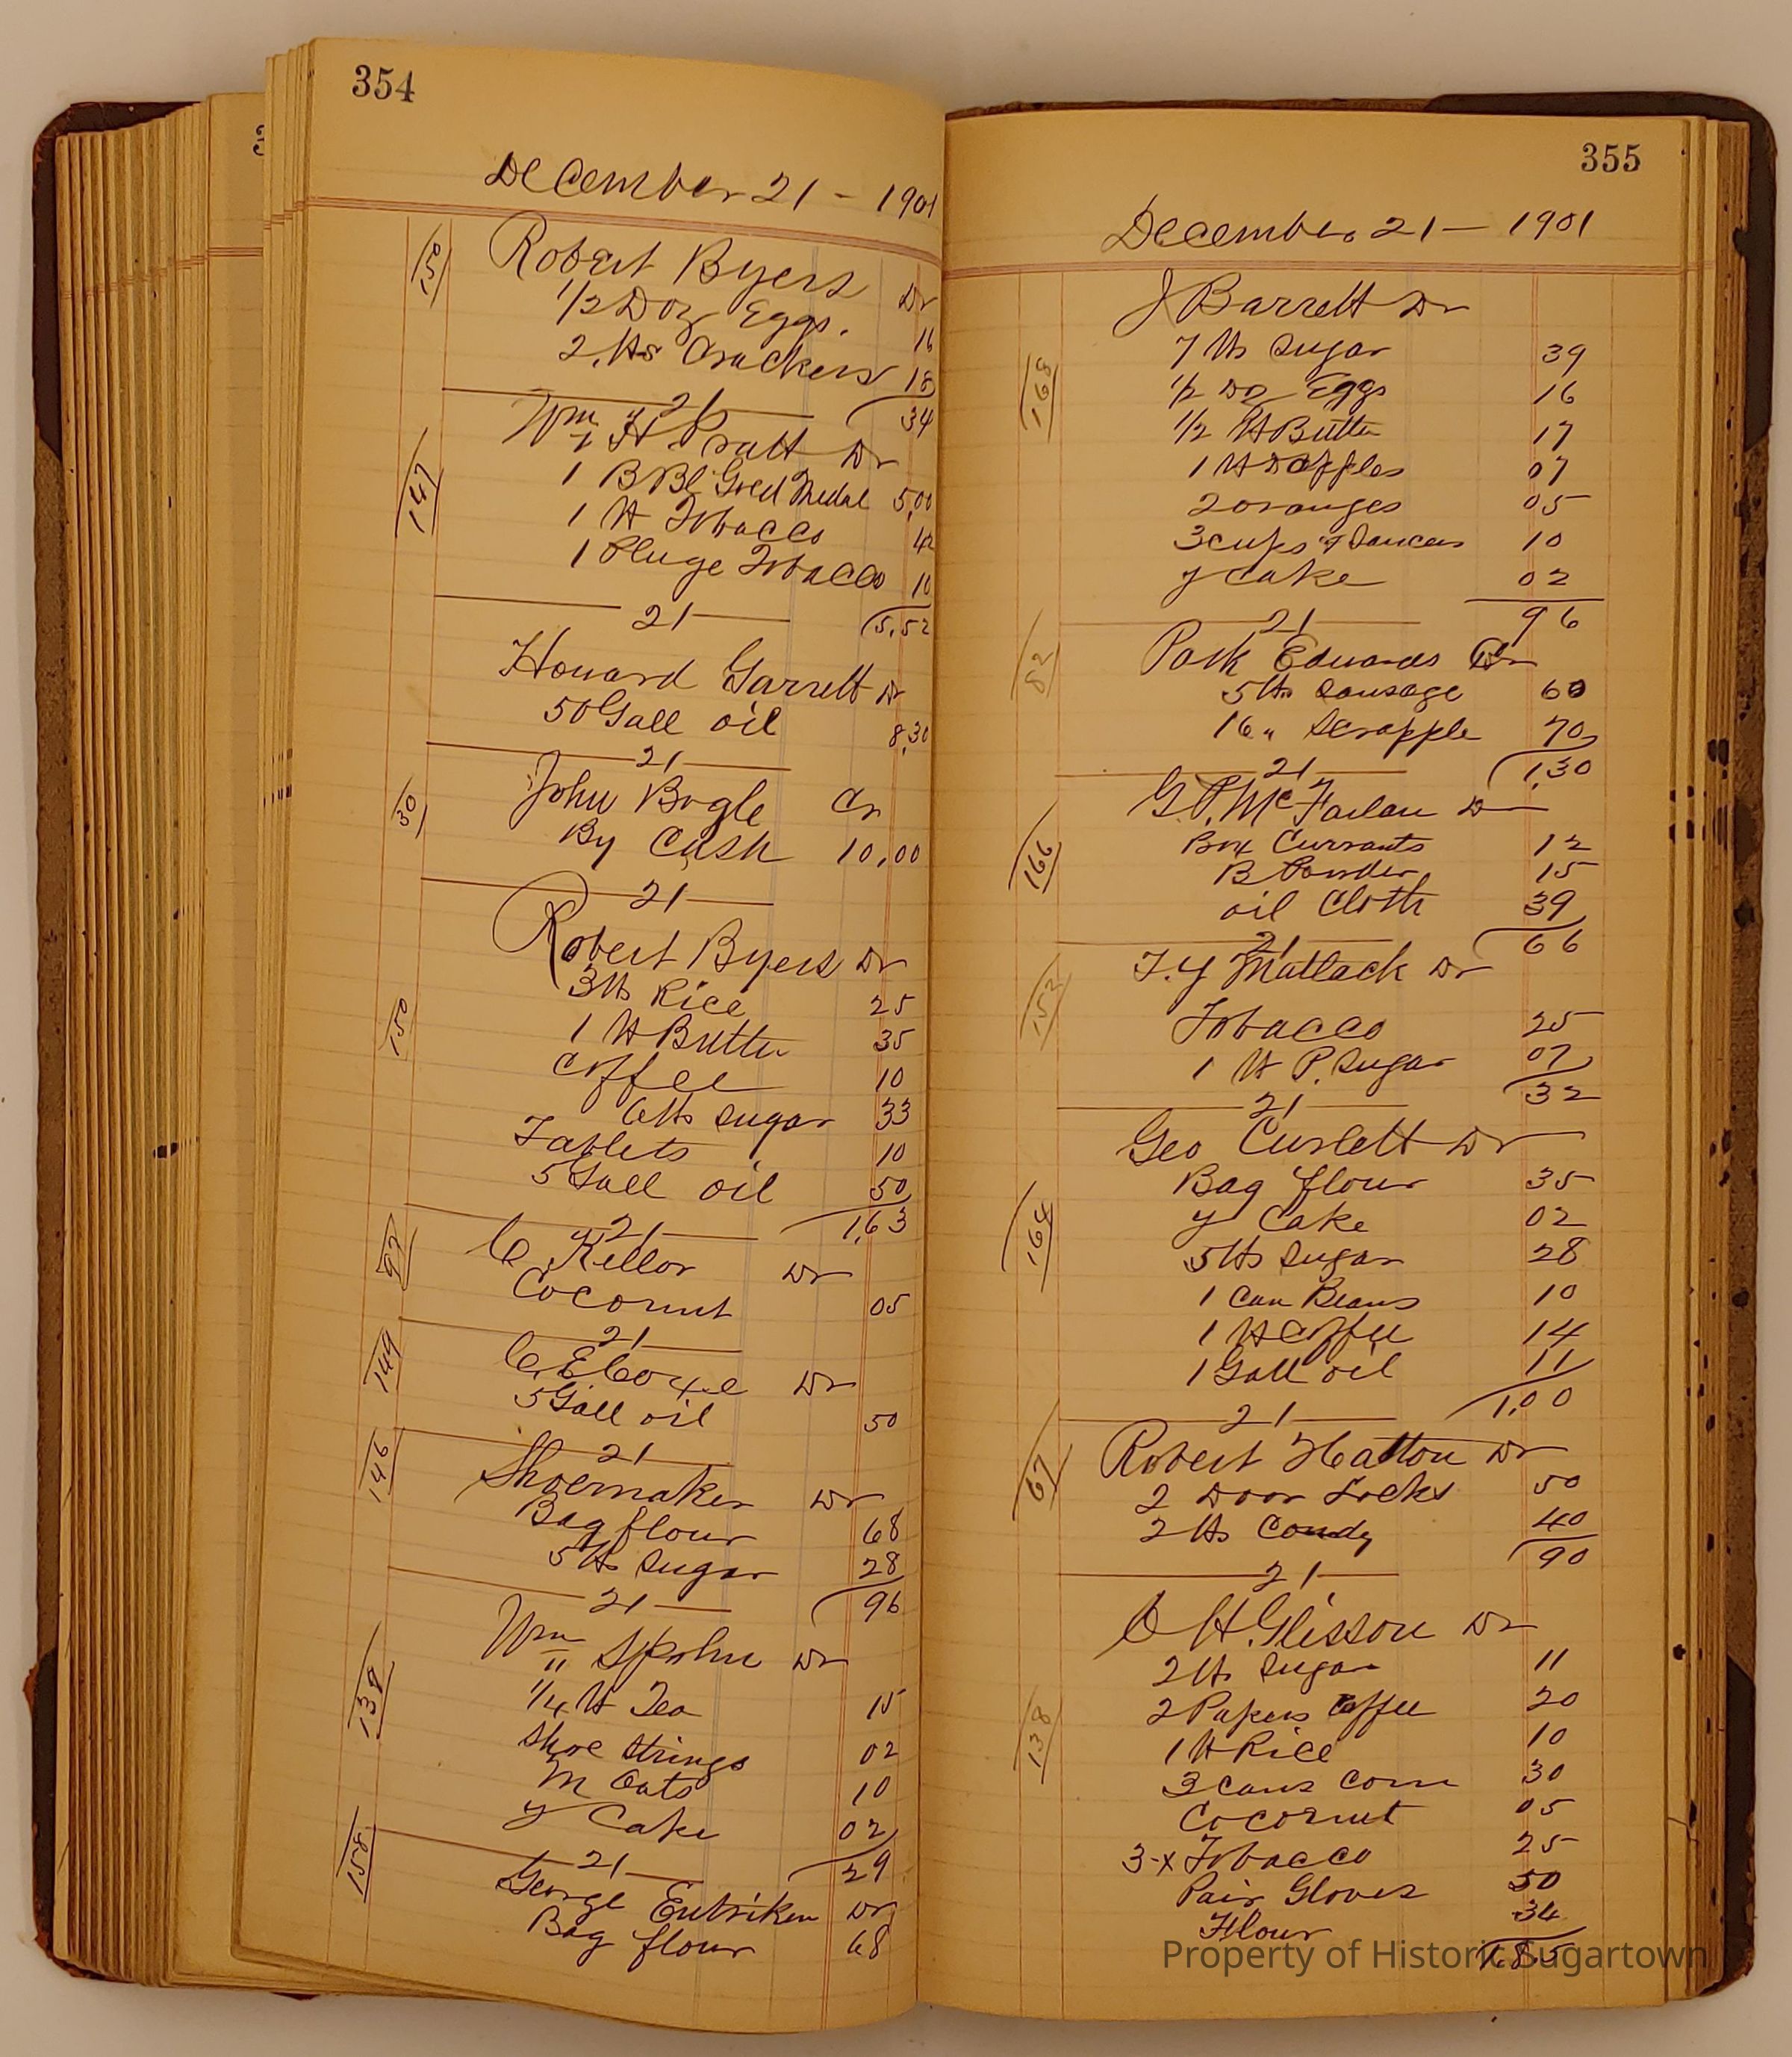 354
December 21 - 1901
150
Robert Byers Dr
1/2 Doz Eggs. 16
2 lbs Crackers 18
21 34
147
Wm H Pratt Dr
1 BBl Gold Medal 5,00
1 lb Tobacco 42
1 Pluge Tobacco 10
21 5,52
Howard Garrett Dr
50 Gall oil 8,30
21
30
John Bogle Cr
By Cash 10,00
21
150
Robert Byers Dr
3 lb Rice 25
1 lb Butter 35
Coffee 10
6 lbs sugar 33
Tablets 10
5 Gall oil 50
21 1,63
97
C Kellor Dr
Cocornut 05
21
149
C. E. Dr
5 Gall oil 50
21
146
Shoemaker Dr
Bag flour 68
5 lb sugar 28
21 96
138
Wm Spohn Dr
1/4 lb Tea 15
Shoe strings 02
M Oats 10
y Cake 02
21 29
158
George Entriken Dr
Bag flour 68
355
December 21 - 1901
J Barrett Dr
168
7 lb Sugar 39
1/2 Dz Eggs 16
1/2 lb Butter 17
1 lb D apples 07
2 oranges 05
3 cups & Saucers 10
y Cake 02
21 96
82
Park Edwards Dr
5 lb Sausage 60
16 " Scrapple 70
21 1,30
G. P. McFarlan Dr
166
Box Currants 12
B Powder 15
oil Cloth 39
21 66
T. y Matlack Dr
152
Tobacco 25
1 lb P. Sugar 07
21 32
Geo Curlett Dr
164
Bag flour 35
y Cake 02
5 lbs Sugar 28
1 Can Beans 10
1 lb Coffee 14
1 Gall oil 11
21 1,00
67
Robert Hatton Dr
2 Door Locks 50
2 lbs Candy 40
21 90
O H. Glisson Dr
138
2 lb Sugar 11
2 Papers Coffee 20
1 lb Rice 10
3 cans Corn 30
Cocornut 05
3-x Tobacco 25
Pair Gloves 50
Flour 34
1.85
Property of Historic Sugartown